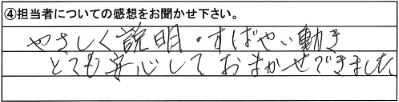 ④担当者についての感想をお聞かせ下さい。
やさしく説明・すばやい動き
とても安心しておまかせできました